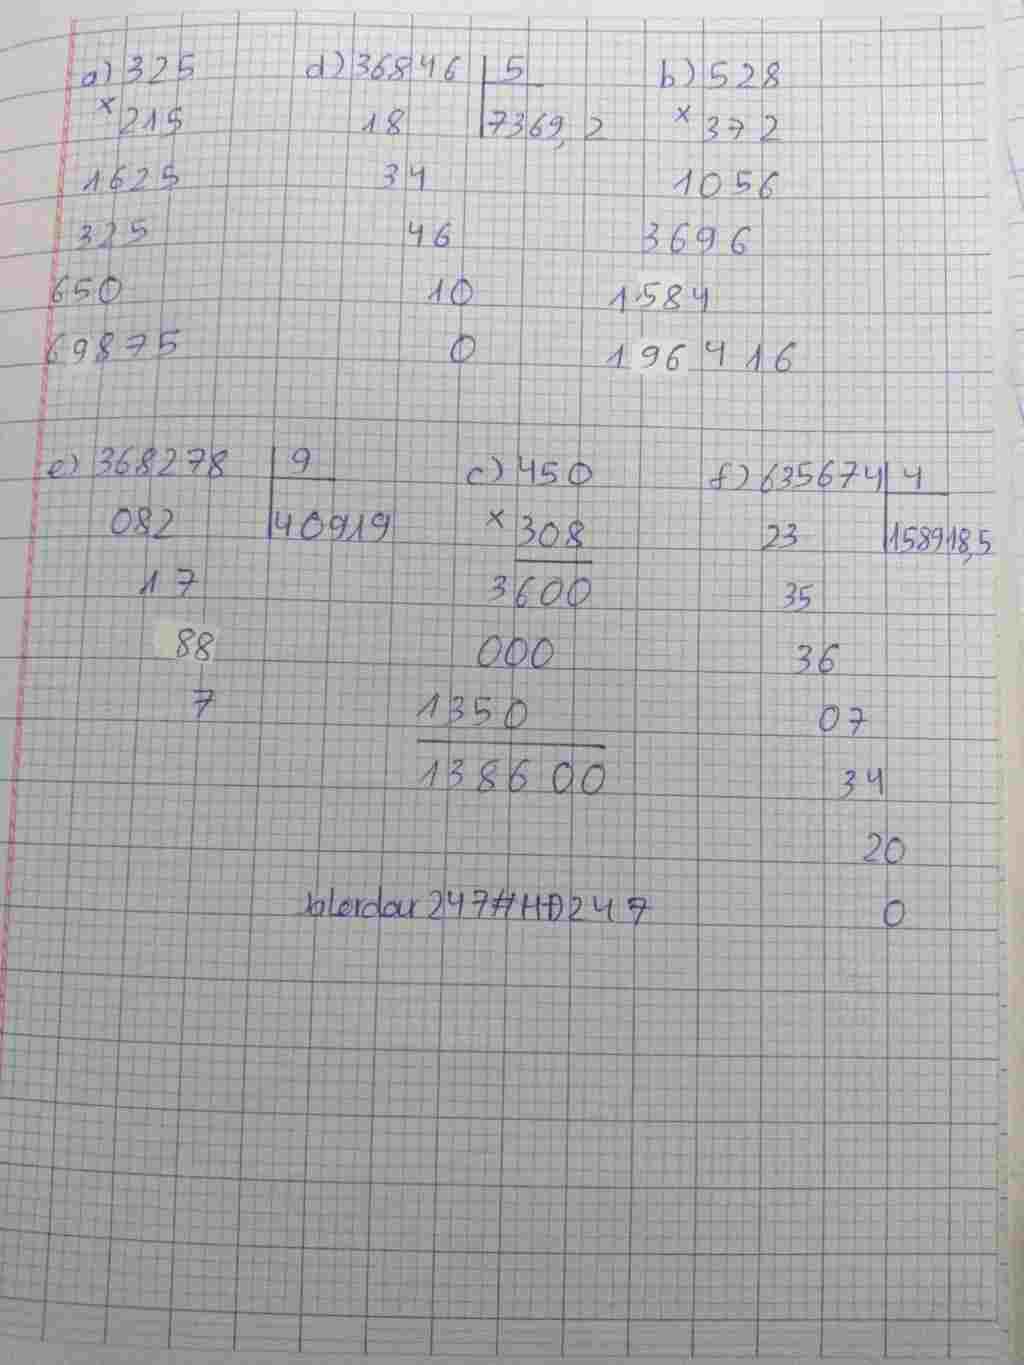 a) 325
× 215
1625
325
650
69875
d) 36846 5
18 7369,2
34
46
10
0
b) 528
× 372
1056
3696
1584
196416
e) 368278 9
082 40919
17
88
7
c) 450
× 308
3600
000
1350
138600
f) 635674 4
23 158918,5
35
36
07
34
20
0
blerdar247#HD247